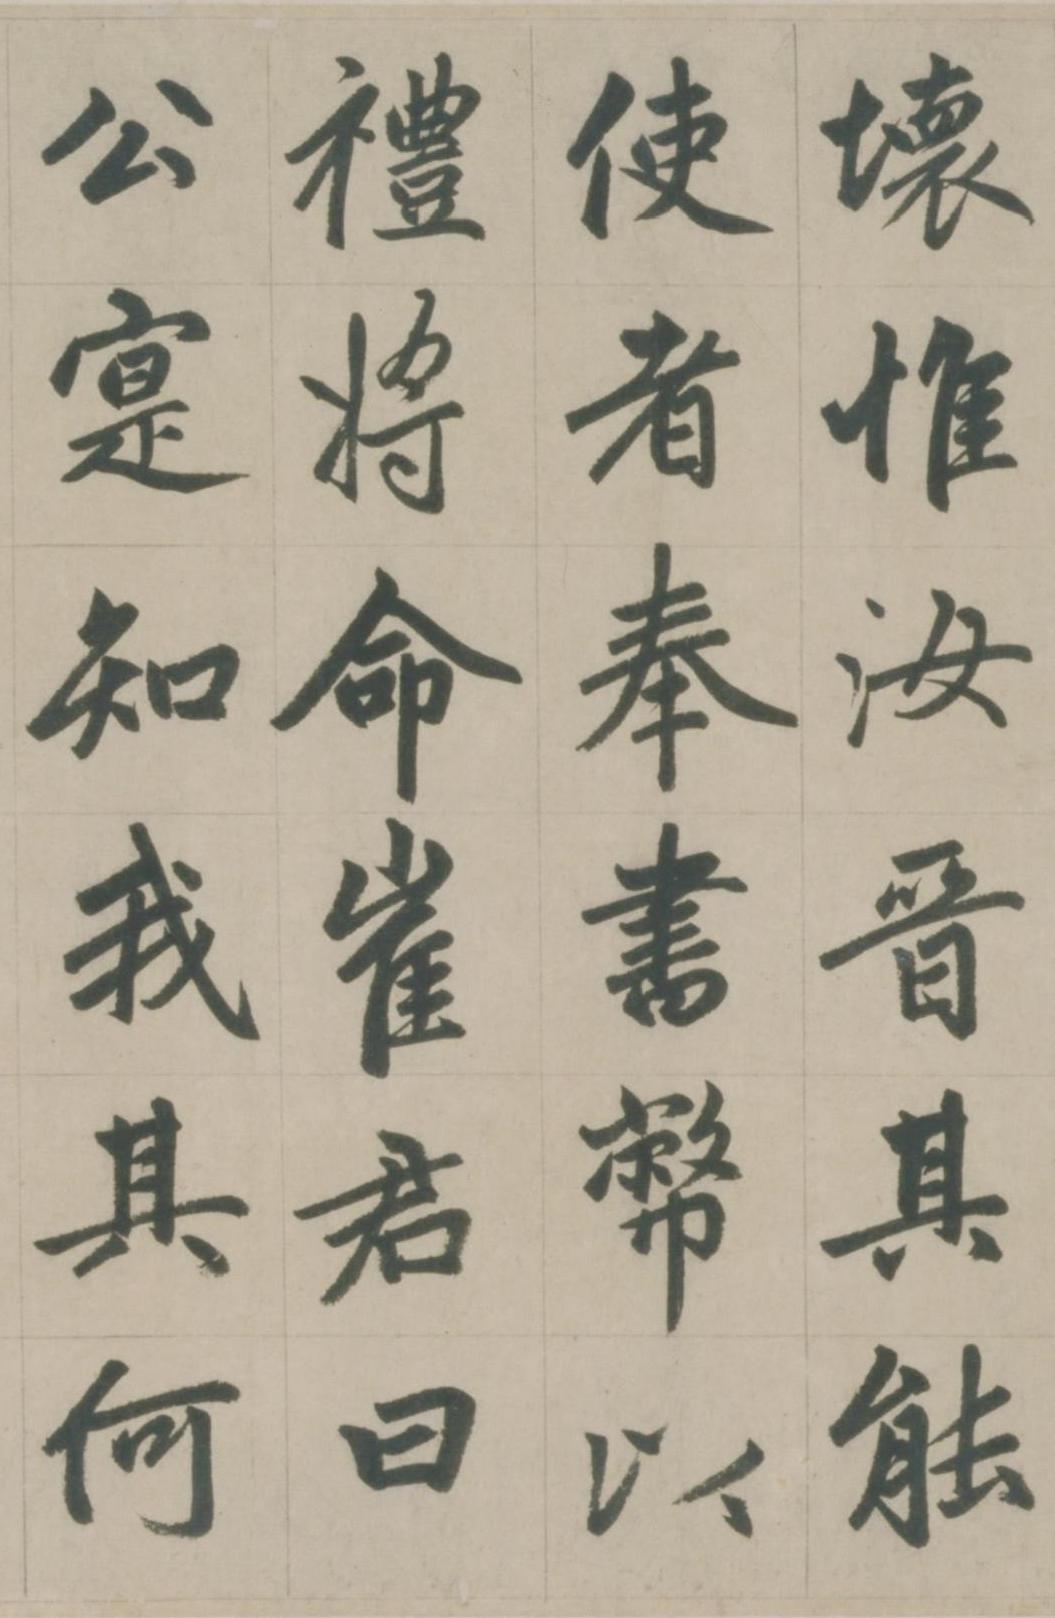 壞惟汝晉其能
使者奉書幣以
禮將命崔君曰
公寔知我其何